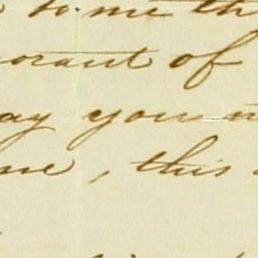 to me th
orant of
ay you
me, this